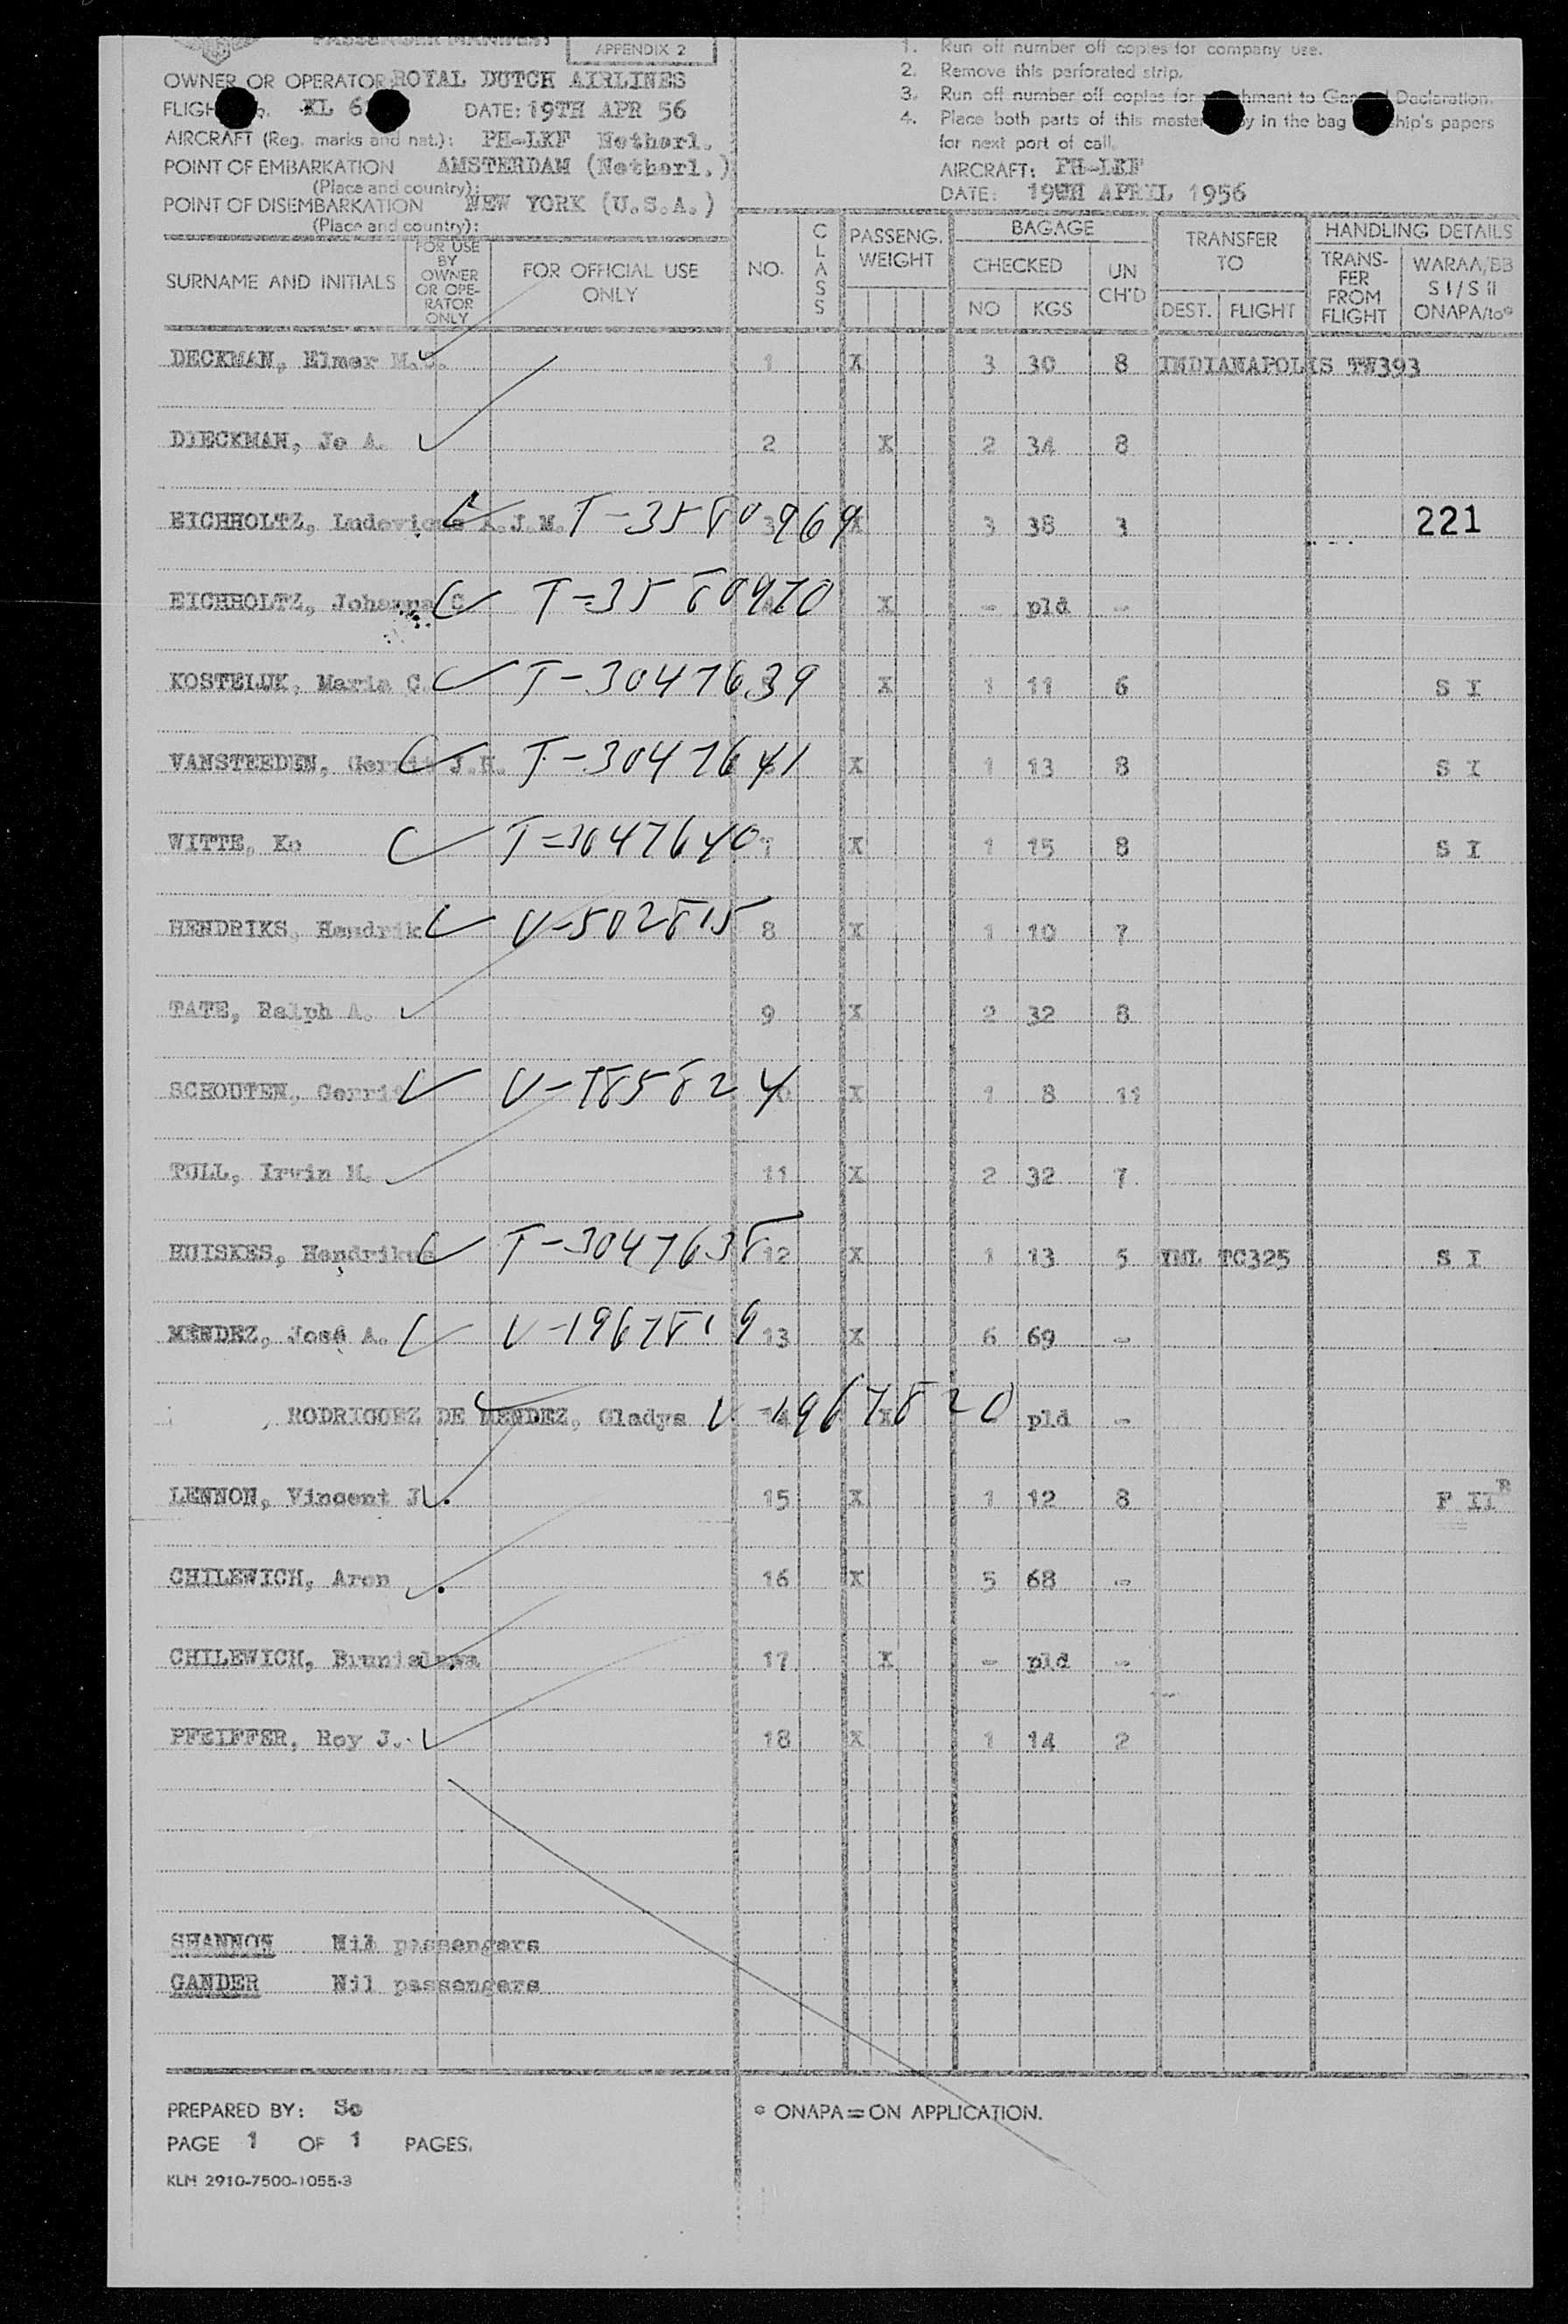 PASSENGER MANIFEST
APPENDIX 2
OWNER OR OPERATOR ROYAL DUTCH AIRLINES
KL 6 DATE: 19TH APR 56
AIRCRAFT (Reg. marks and nat.): PH-LKF Netherl.
POINT OF EMBARKATION AMSTERDAM (Netherl.)
(Place and country):
POINT OF DISEMBARKATION NEW YORK (U.S.A.)
(Place and country):
1. Run off number off copies for company use.
2. Remove this perforated strip.
3. Run off number off copies for Declaration.
4. Place both parts of this master in the bag papers
for next port of call.
AIRCRAFT: PH-LKF
DATE: 19TH APRIL 1956
SURNAME AND INITIALS
FOR USE BY OWNER OR OPE-RATOR ONLY
FOR OFFICIAL USE ONLY
NO.
CLASS
PASSENG. WEIGHT
BAGAGE
CHECKED
NO KGS
UN CH'D
TRANSFER TO
DEST. FLIGHT
HANDLING DETAILS
TRANS-FER FROM FLIGHT
WARAA/BB S I / S II ONAPA/to*
DECKMAN, Elmer M. 1 X 3 30 8 INDIANAPOLIS TW393
DIECKMAN, Jo A. 2 X 2 34 8
EICHHOLTZ, Ludovicus A.J.M. T-3580969 3 X 3 38 3 221
EICHHOLTZ, Johanna C T-3580970 X - pld -
KOSTELIJK, Maria C. T-3047639 X 1 11 6 S I
VANSTEEDEN, Gerrit J.H. T-3047641 X 1 13 8 S I
WITTE, Ko T-3047640 7 X 1 15 8 S I
HENDRIKS, Hendrik V-502815 8 X 1 10 7
TATE, Ralph A. 9 X 2 32 8
SCHOUTEN, Gerrit V-785824 10 X 1 8 11
TULL, Irwin M. 11 X 2 32 7
HUISKES, Hendrikus T-3047638 12 X 1 13 5 IML TC325 S I
MENDEZ, José A. V-1967819 13 X 6 69 -
RODRIGUEZ DE MENDEZ, Gladys V-1967820 14 X pld -
LENNON, Vincent J. 15 X 1 12 8 F II R
CHILEWICH, Aron 16 X 5 68 -
CHILEWICH, Brunislawa 17 X - pld -
PFEIFFER, Roy J. 18 X 1 14 2
SHANNON Nil passengers
GANDER Nil passengers
PREPARED BY: So
PAGE 1 OF 1 PAGES.
KLM 2910-7500-1055-3
* ONAPA = ON APPLICATION.